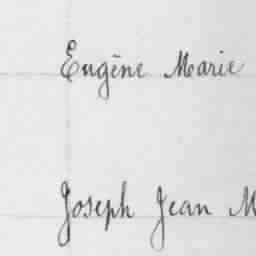 Eugène Marie
Joseph Jean M